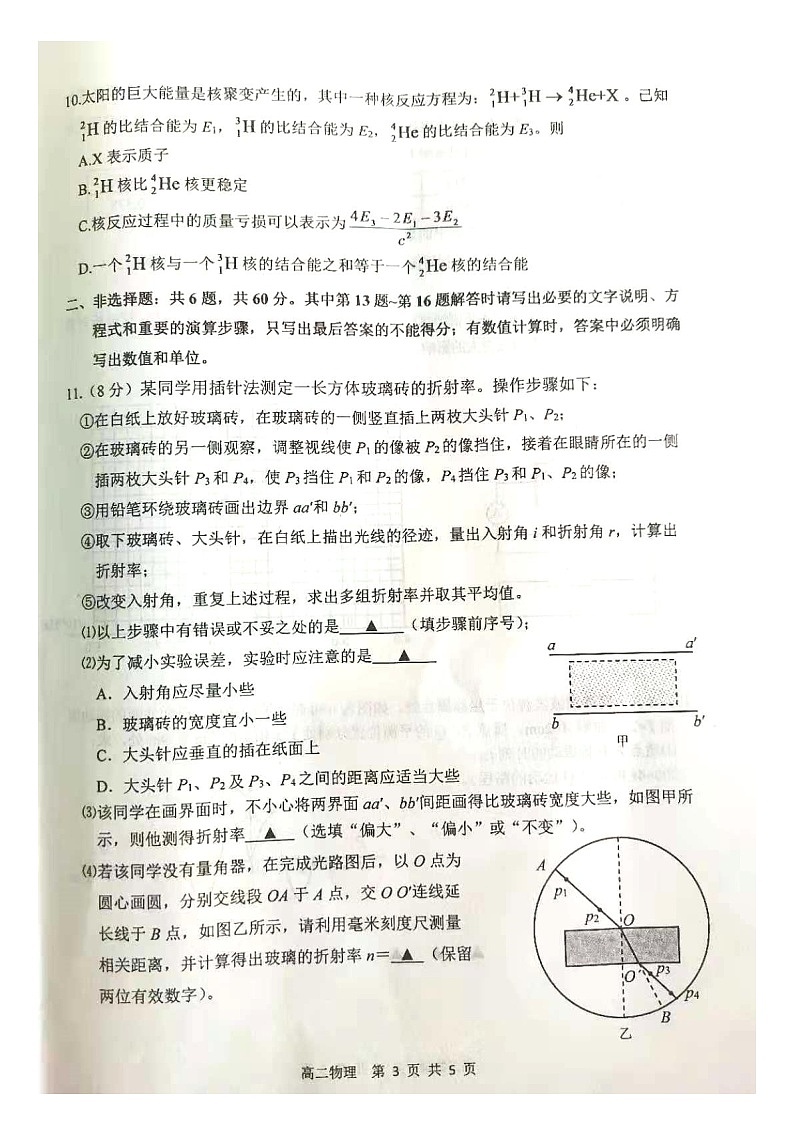 10.太阳的巨大能量是核聚变产生的，其中一种核反应方程为：²₁H+³₁H→⁴₂He+X 。己知
²₁H 的比结合能为 E₁，³₁H 的比结合能为 E₂，⁴₂He 的比结合能为 E₃。则
A.X 表示质子
B.²₁H 核比⁴₂He 核更稳定
C.核反应过程中的质量亏损可以表示为 (4E₃－2E₁－3E₂)/c²
D.一个²₁H 核与一个³₁H 核的结合能之和等于一个⁴₂He 核的结合能
二、非选择题：共 6 题，共 60 分。其中第 13 题~第 16 题解答时请写出必要的文字说明、方
程式和重要的演算步骤，只写出最后答案的不能得分；有数值计算时，答案中必须明确
写出数值和单位。
11.（8 分）某同学用插针法测定一长方体玻璃砖的折射率。操作步骤如下：
①在白纸上放好玻璃砖，在玻璃砖的一侧竖直插上两枚大头针 P₁、P₂；
②在玻璃砖的另一侧观察，调整视线使 P₁的像被 P₂的像挡住，接着在眼睛所在的一侧
插两枚大头针 P₃和 P₄，使 P₃挡住 P₁和 P₂的像，P₄挡住 P₃和 P₁、P₂的像；
③用铅笔环绕玻璃砖画出边界 aa′和 bb′；
④取下玻璃砖、大头针，在白纸上描出光线的径迹，量出入射角 i 和折射角 r，计算出
折射率；
⑤改变入射角，重复上述过程，求出多组折射率并取其平均值。
⑴以上步骤中有错误或不妥之处的是 ▲ （填步骤前序号）；
⑵为了减小实验误差，实验时应注意的是 ▲
A．入射角应尽量小些
B．玻璃砖的宽度宜小一些
C．大头针应垂直的插在纸面上
D．大头针 P₁、P₂及 P₃、P₄之间的距离应适当大些
a a′
b b′
甲
⑶该同学在画界面时，不小心将两界面 aa′、bb′间距画得比玻璃砖宽度大些，如图甲所
示，则他测得折射率 ▲ （选填“偏大”、“偏小”或“不变”）。
⑷若该同学没有量角器，在完成光路图后，以 O 点为
圆心画圆，分别交线段 OA 于 A 点，交 O O′连线延
长线于 B 点，如图乙所示，请利用毫米刻度尺测量
相关距离，并计算得出玻璃的折射率 n＝ ▲ （保留
两位有效数字）。
A
p₁
p₂
O
O′
p₃
p₄
B
乙
高二物理 第 3 页 共 5 页